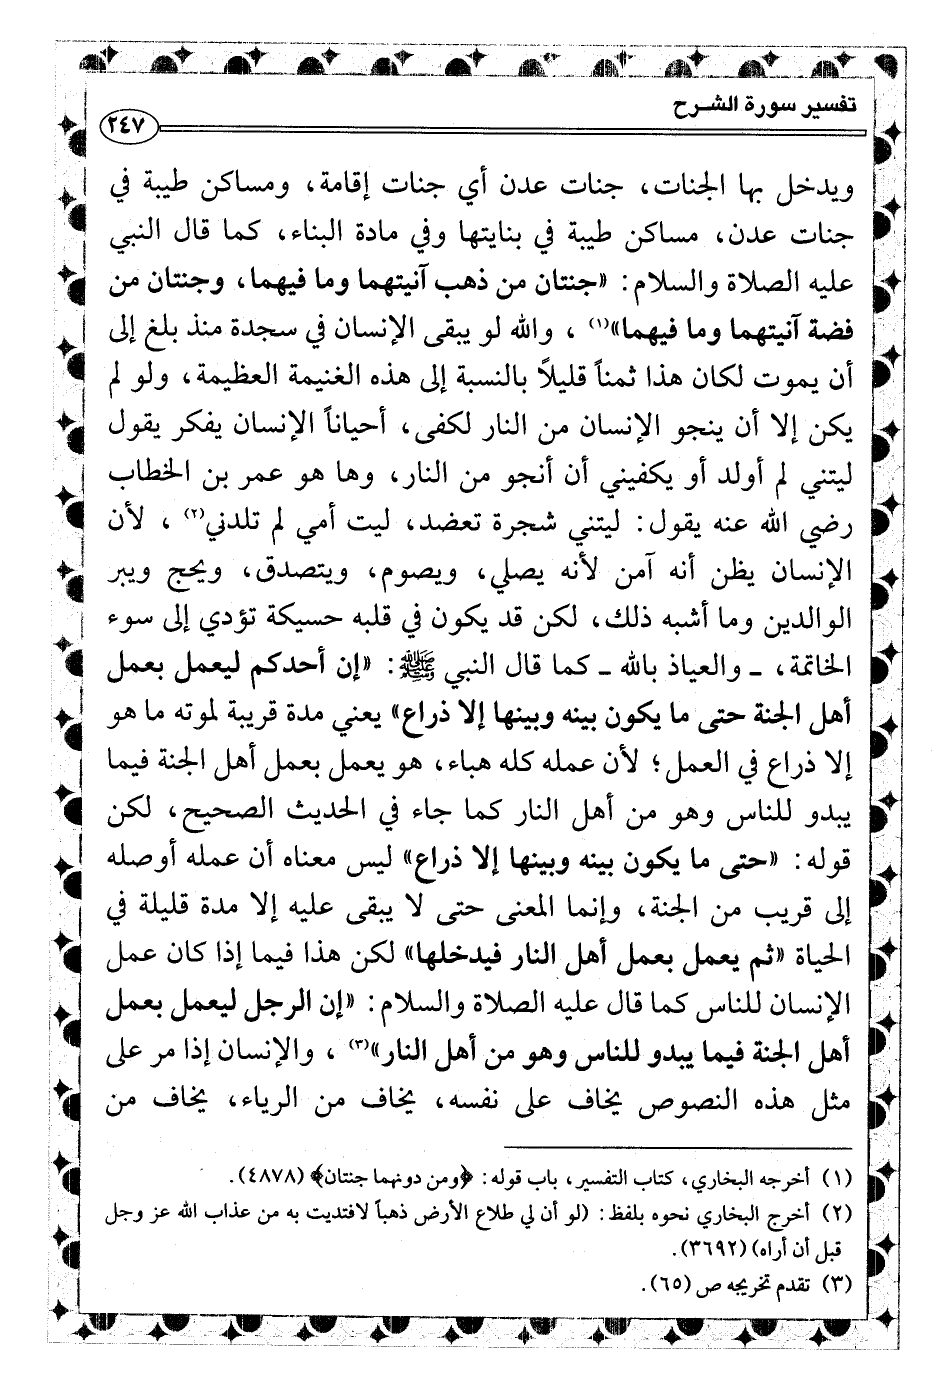 تفسير سورة الشرح
٢٤٧
ويدخل بها الجنات، جنات عدن أي جنات إقامة، ومساكن طيبة في
جنات عدن، مساكن طيبة في بنايتها وفي مادة البناء، كما قال النبي
عليه الصلاة والسلام: «جنتان من ذهب آنيتهما وما فيهما، وجنتان من
فضة آنيتهما وما فيهما»(١) ، والله لو يبقى الإنسان في سجدة منذ بلغ إلى
أن يموت لكان هذا ثمناً قليلاً بالنسبة إلى هذه الغنيمة العظيمة، ولو لم
يكن إلا أن ينجو الإنسان من النار لكفى، أحياناً الإنسان يفكر يقول
ليتني لم أولد أو يكفيني أن أنجو من النار، وها هو عمر بن الخطاب
رضي الله عنه يقول: ليتني شجرة تعضد، ليت أمي لم تلدني(٢) ، لأن
الإنسان يظن أنه آمن لأنه يصلي، ويصوم، ويتصدق، ويحج ويبر
الوالدين وما أشبه ذلك، لكن قد يكون في قلبه حسيكة تؤدي إلى سوء
الخاتمة، ـ والعياذ بالله ـ كما قال النبي ﷺ: «إن أحدكم ليعمل بعمل
أهل الجنة حتى ما يكون بينه وبينها إلا ذراع» يعني مدة قريبة لموته ما هو
إلا ذراع في العمل؛ لأن عمله كله هباء، هو يعمل بعمل أهل الجنة فيما
يبدو للناس وهو من أهل النار كما جاء في الحديث الصحيح، لكن
قوله: «حتى ما يكون بينه وبينها إلا ذراع» ليس معناه أن عمله أوصله
إلى قريب من الجنة، وإنما المعنى حتى لا يبقى عليه إلا مدة قليلة في
الحياة «ثم يعمل بعمل أهل النار فيدخلها» لكن هذا فيما إذا كان عمل
الإنسان للناس كما قال عليه الصلاة والسلام: «إن الرجل ليعمل بعمل
أهل الجنة فيما يبدو للناس وهو من أهل النار»(٣) ، والإنسان إذا مر على
مثل هذه النصوص يخاف على نفسه، يخاف من الرياء، يخاف من
(١) أخرجه البخاري، كتاب التفسير، باب قوله: ﴿ومن دونهما جنتان﴾ (٤٨٧٨).
(٢) أخرج البخاري نحوه بلفظ: (لو أن لي طلاع الأرض ذهباً لافتديت به من عذاب الله عز وجل
قبل أن أراه) (٣٦٩٢).
(٣) تقدم تخريجه ص (٦٥).